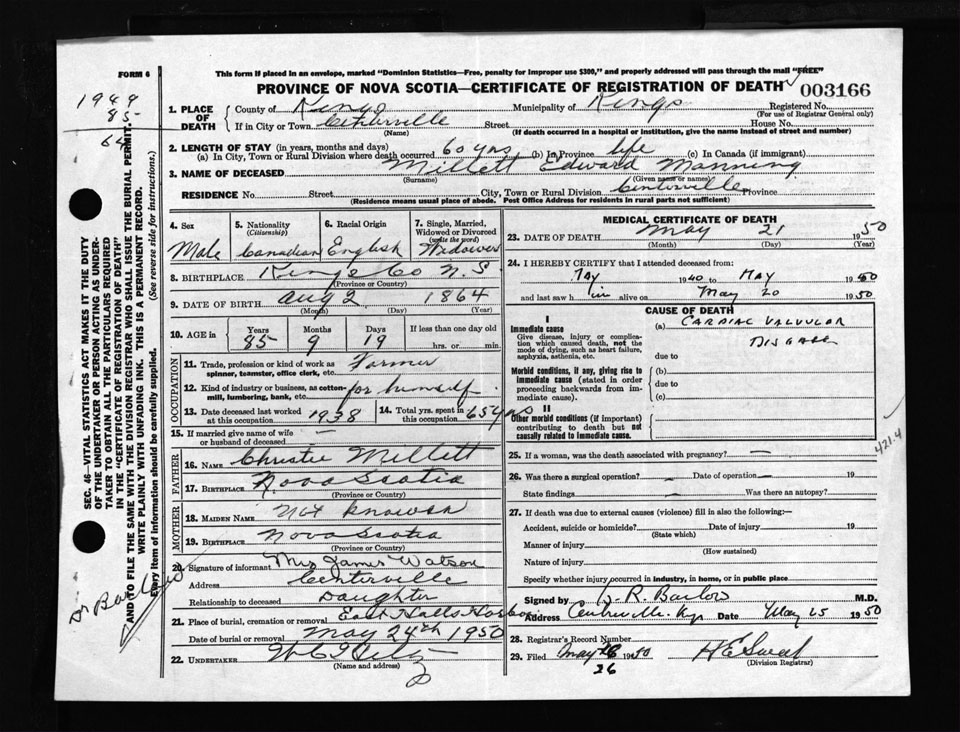 FORM 6
This form if placed in an envelope, marked "Dominion Statistics—Free, penalty for improper use $300," and properly addressed will pass through the mail "FREE"
PROVINCE OF NOVA SCOTIA—CERTIFICATE OF REGISTRATION OF DEATH
003166
1949
85
64
1. PLACE OF DEATH
County of Kings Municipality of Kings Registered No.
(For use of Registrar General only)
If in City or Town Centerville Street House No.
(Name) (If death occurred in a hospital or institution, give the name instead of street and number)
2. LENGTH OF STAY (in years, months and days)
(a) In City, Town or Rural Division where death occurred 60 yrs (b) In Province life (c) In Canada (if immigrant)
3. NAME OF DECEASED Millett Edward Manning
(Surname) (Given name or names)
RESIDENCE No. Street City, Town or Rural Division Centerville Province
(Residence means usual place of abode. Post Office Address for residents in rural parts not sufficient)
4. Sex
Male
5. Nationality
(Citizenship)
Canadian
6. Racial Origin
English
7. Single, Married, Widowed or Divorced
(write the word)
Widower
8. BIRTHPLACE Kings Co N.S
(Province or Country)
9. DATE OF BIRTH Aug 2 1864
(Month) (Day) (Year)
10. AGE in
Years Months Days If less than one day old
85 9 19 hrs. or min.
OCCUPATION
11. Trade, profession or kind of work as spinner, teamster, office clerk, etc. Farmer
12. Kind of industry or business, as cotton-mill, lumbering, bank, etc. for himself
13. Date deceased last worked at this occupation 1938
14. Total yrs. spent in this occupation 65 yrs
15. If married give name of wife or husband of deceased —
FATHER
16. NAME Christie Millett
17. BIRTHPLACE Nova Scotia
(Province or Country)
MOTHER
18. MAIDEN NAME Not known
19. BIRTHPLACE Nova Scotia
(Province or Country)
20. Signature of informant Mrs James Watson
Address Centerville
Relationship to deceased Daughter
21. Place of burial, cremation or removal East Halls Harbor
Date of burial or removal May 24th 1950
22. UNDERTAKER
(Name and address)
MEDICAL CERTIFICATE OF DEATH
23. DATE OF DEATH May 21 1950
(Month) (Day) (Year)
24. I HEREBY CERTIFY that I attended deceased from:
1940 to May 1950
and last saw him alive on May 20 1950
CAUSE OF DEATH
I
Immediate cause
Give disease, injury or complication which caused death, not the mode of dying, such as heart failure, asphyxia, asthenia, etc.
(a) CARDIAC VALVULAR
DISEASE
due to
Morbid conditions, if any, giving rise to immediate cause (stated in order proceeding backwards from immediate cause).
(b)
due to
(c)
II
Other morbid conditions (if important) contributing to death but not causally related to immediate cause.
421.4
25. If a woman, was the death associated with pregnancy? —
26. Was there a surgical operation? — Date of operation — 19
State findings Was there an autopsy?
27. If death was due to external causes (violence) fill in also the following:—
Accident, suicide or homicide? Date of injury 19
(State which)
Manner of injury
(How sustained)
Nature of injury
Specify whether injury occurred in industry, in home, or in public place
Signed by B. R. Barlow M.D.
Address Centreville Date May 25 1950
28. Registrar's Record Number
29. Filed May 26 1950 H E Sweet
26 (Division Registrar)
SEC. 46—VITAL STATISTICS ACT MAKES IT THE DUTY
OF THE UNDERTAKER OR PERSON ACTING AS UNDER-
TAKER TO OBTAIN ALL THE PARTICULARS REQUIRED
IN THE "CERTIFICATE OF REGISTRATION OF DEATH"
AND TO FILE THE SAME WITH THE DIVISION REGISTRAR WHO SHALL ISSUE THE BURIAL PERMIT.
WRITE PLAINLY WITH UNFADING INK. THIS IS A PERMANENT RECORD.
Every item of information should be carefully supplied. (See reverse side for instructions.)
Dr Barlow